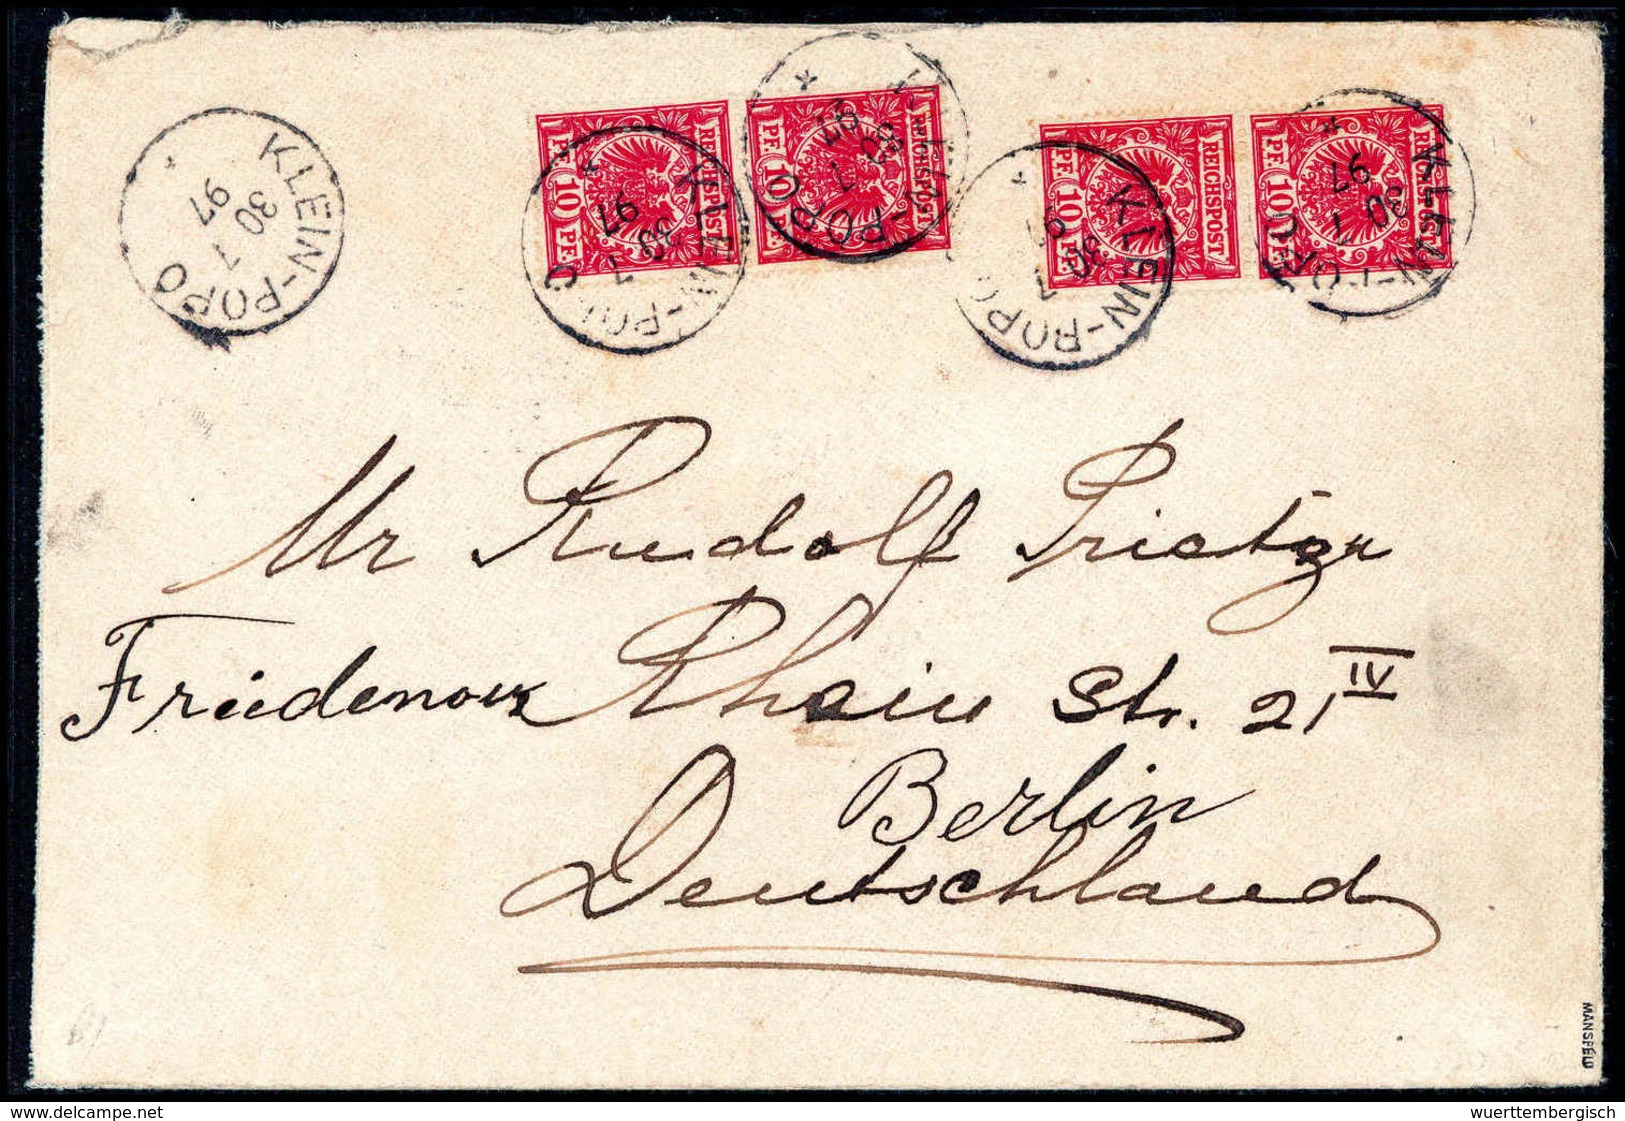 KLEIN-POPO
30 7 97
KLEIN-POPO
30 7 97
KLEIN-POPO
30 7 97
KLEIN-POPO
30 7 97
KLEIN-POPO
30 7 97
REICHSPOST
PF 10 PF
REICHSPOST
PF 10 PF
REICHSPOST
PF 10 PF
REICHSPOST
PF 10 PF
Mr Rudolf
Friedenau Rhein Str. 21 IV
Berlin
Deutschland
MANSFELD
www.delcampe.net
wuerttembergisch